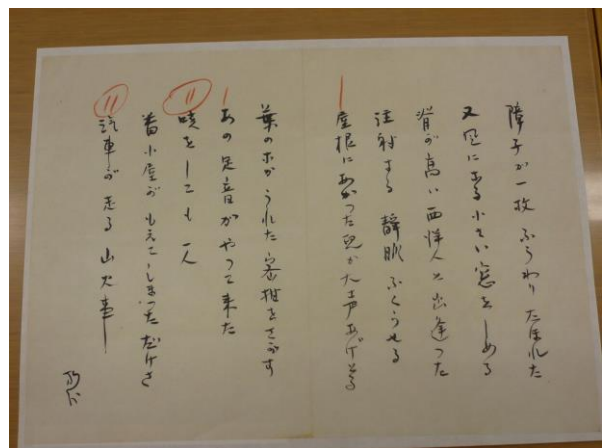 障子が一枚ふうわりたほれた
小さい窓をしめる
背が高い西洋人と出逢つた
注射する静脈ふくらせる
屋根にあがつた児が大声
うれた蜜柑をさがす
あの足音がやつて来た
咳をしても一人
番小屋がもえてしまつただけさ
汽車が走る山火事